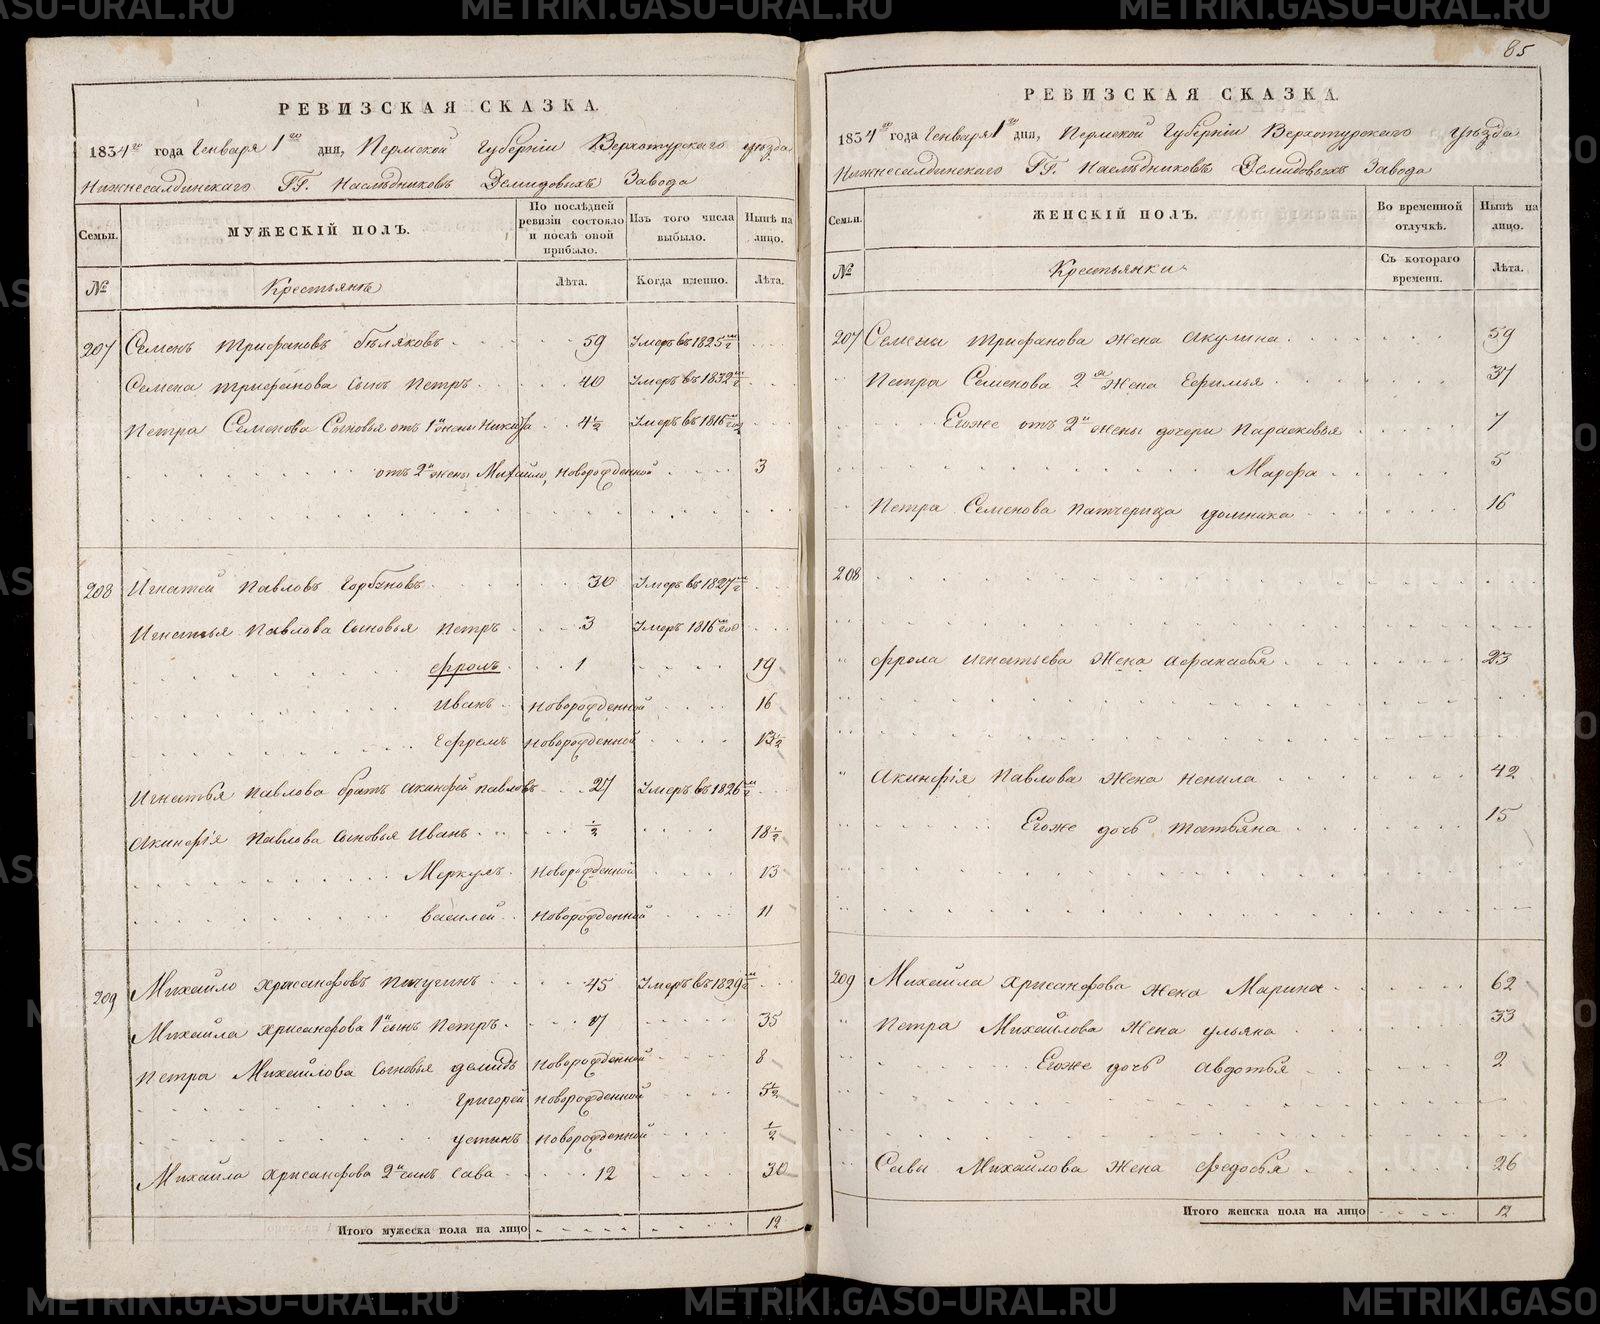 85
РЕВИЗСКАЯ СКАЗКА.
1834го года Генваря 1го дня, Пермской Губерніи Верхотурскаго уѣзда
Нижнесалдинскаго ГГ. Наслѣдниковъ Демидовыхъ Завода
Семьи. МУЖЕСКІЙ ПОЛЪ. По послѣдней ревизіи состояло и послѣ оной прибыло. Изъ того числа выбыло. Нынѣ на лицо.
№ Крестьяне Лѣта. Когда именно. Лѣта.
207 Семенъ Трифановъ Бѣляковъ 59 Умеръ въ 1825мъ
Семена Трифанова сынъ Петръ 40 Умеръ въ 1832мъ
Петра Семенова Сыновья отъ 1й жены Никита 4½ Умеръ въ 1816мъ году
отъ 2й жены Михайло, Новорожденной 3
208 Игнатей Павловъ Горбуновъ 30 Умеръ въ 1827мъ
Игнатья Павлова Сыновья Петръ 3 Умеръ 1816мъ году
Фролъ 1 19
Иванъ Новорожденной 16
Ефремъ Новорожденной 13½
Игнатья Павлова братъ Акинфей Павловъ 27 Умеръ въ 1826мъ
Акинфія Павлова Сыновья Иванъ ½ 18½
Меркулъ Новорожденной 13
Василей Новорожденной 11
209 Михайло Хрисанфовъ Пичугинъ 45 Умеръ въ 1829мъ
Михайла Хрисанфова 1й сынъ Петръ 17 35
Петра Михайлова Сыновья Демидъ Новорожденной 8
Григорей Новорожденной 5½
Устинъ Новорожденной ½
Михайла Хрисанфова 2й сынъ Сава 12 30
Итого мужеска пола на лицо 12
РЕВИЗСКАЯ СКАЗКА.
1834го года Генваря 1го дня, Пермской Губерніи Верхотурскаго уѣзда
Нижнесалдинскаго ГГ. Наслѣдниковъ Демидовыхъ Завода
Семьи. ЖЕНСКІЙ ПОЛЪ. Во временной отлучкѣ. Нынѣ на лицо.
№ Крестьянки Съ котораго времени. Лѣта.
207 Семена Трифанова жена Акулина 59
Петра Семенова 2я жена Ефимья 37
Егоже отъ 2й жены дочери Парасковья 7
Марфа 5
Петра Семенова патчерица Домника 16
208
Фрола Игнатьева жена Афанасья 23
Акинфія Павлова жена Ненила 42
Егоже дочь Татьяна 15
209 Михайла Хрисанфова жена Марина 62
Петра Михайлова жена Ульяна 33
Егоже дочь Авдотья 2
Савы Михайлова жена Федосья 26
Итого женска пола на лицо 12
METRIKI.GASO-URAL.RU